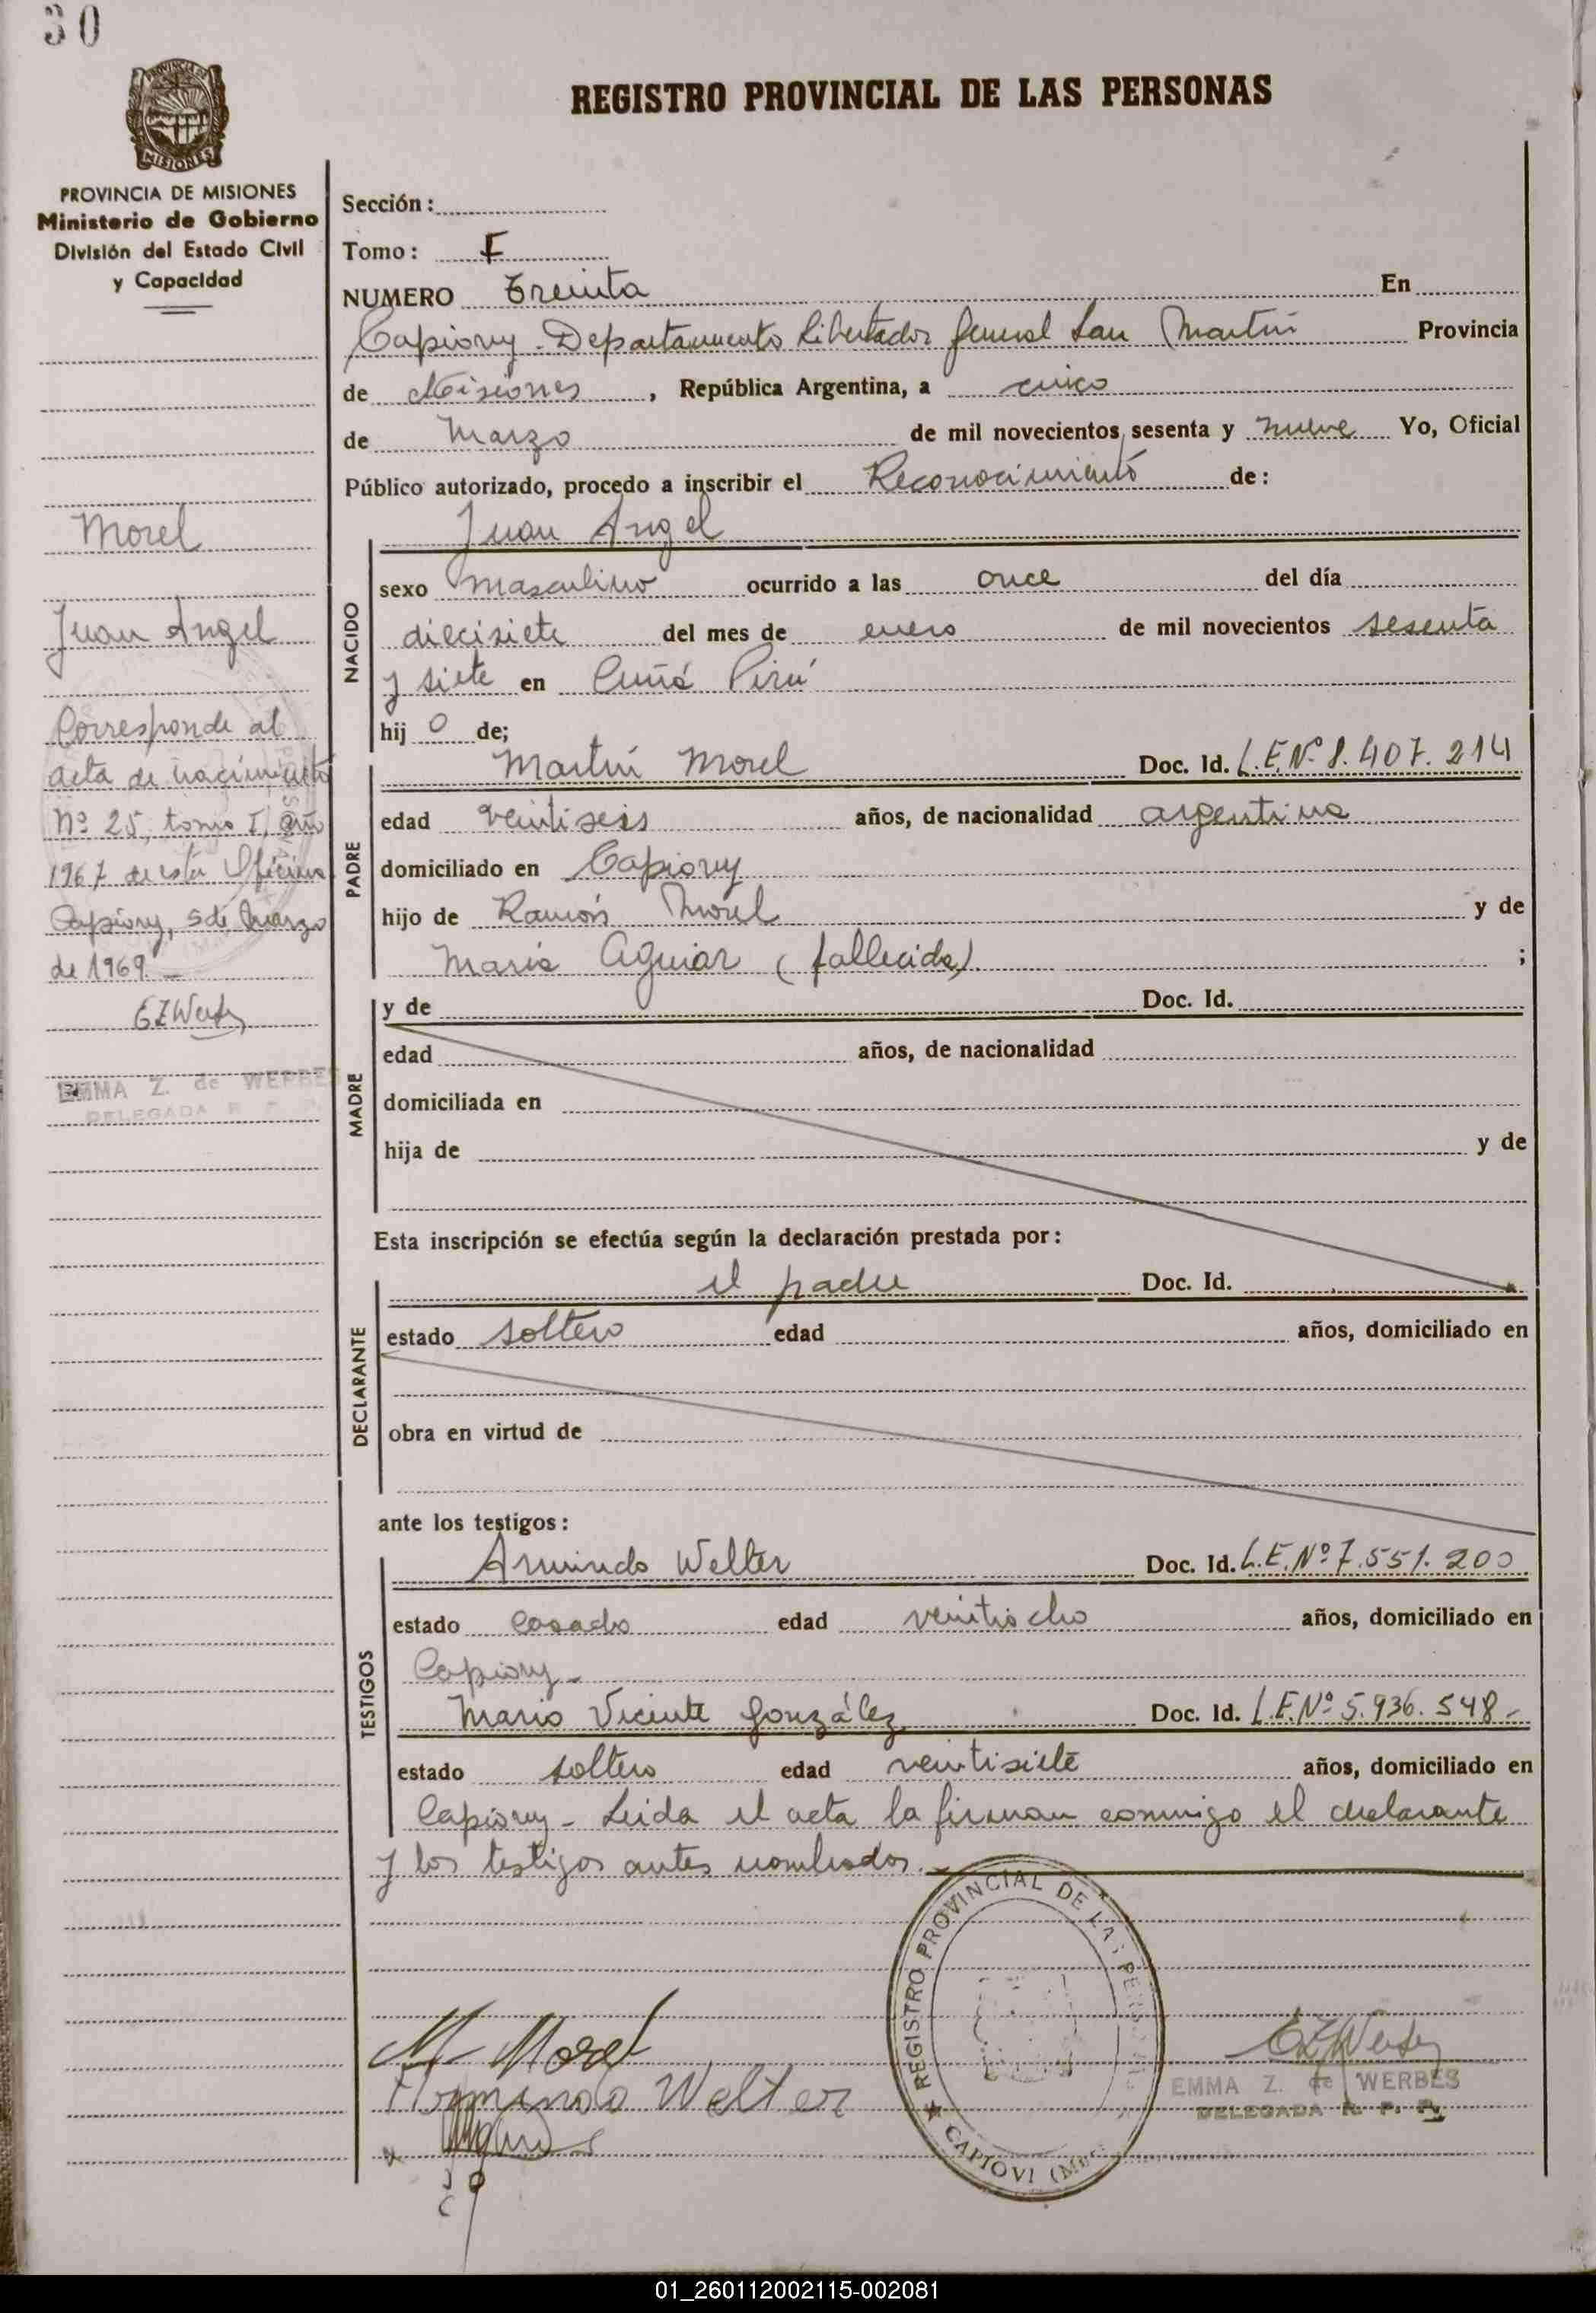 30
PROVINCIA DE MISIONES
MISIONES
REGISTRO PROVINCIAL DE LAS PERSONAS
PROVINCIA DE MISIONES
Ministerio de Gobierno
División del Estado Civil
y Capacidad
Morel
Juan Angel
Corresponde al
acta de nacimiento
Nº 25, tomo I, año
1967 de esta Oficina
Capiovy, 5 de marzo
de 1969.-
EZWerbes
EMMA Z. de WERBES
DELEGADA R. P. P.
Sección:
Tomo: I
NUMERO Treinta En
Capiovy - Departamento Libertador General San Martín Provincia
de Misiones, República Argentina, a cinco
de Marzo de mil novecientos sesenta y nueve Yo, Oficial
Público autorizado, procedo a inscribir el Reconocimiento de:
NACIDO
Juan Angel
sexo masculino ocurrido a las once del día
diecisiete del mes de enero de mil novecientos sesenta
y siete en Cuñá Pirú
hijo de;
PADRE
Martín Morel Doc. Id. L.E.Nº 8.407.214
edad veintiseis años, de nacionalidad argentina
domiciliado en Capiovy
hijo de Ramón Morel y de
María Aguiar (fallecida) ;
MADRE
y de Doc. Id.
edad años, de nacionalidad
domiciliada en
hija de y de
Esta inscripción se efectúa según la declaración prestada por:
DECLARANTE
el padre Doc. Id.
estado soltero edad años, domiciliado en
obra en virtud de
ante los testigos:
TESTIGOS
Armindo Welter Doc. Id. L.E.Nº 7.551.200
estado casado edad veintiocho años, domiciliado en
Capiovy -
Mario Vicente González Doc. Id. L.E.Nº 5.936.548-
estado soltero edad veintisiete años, domiciliado en
Capiovy - Leida el acta la firman conmigo el declarante
y los testigos antes nombrados.-
M Morel
Armindo Welter
REGISTRO PROVINCIAL DE LAS PERSONAS
★ CAPIOVI
EZWerbes
EMMA Z. de WERBES
DELEGADA R. P. P.
01_260112002115-002081